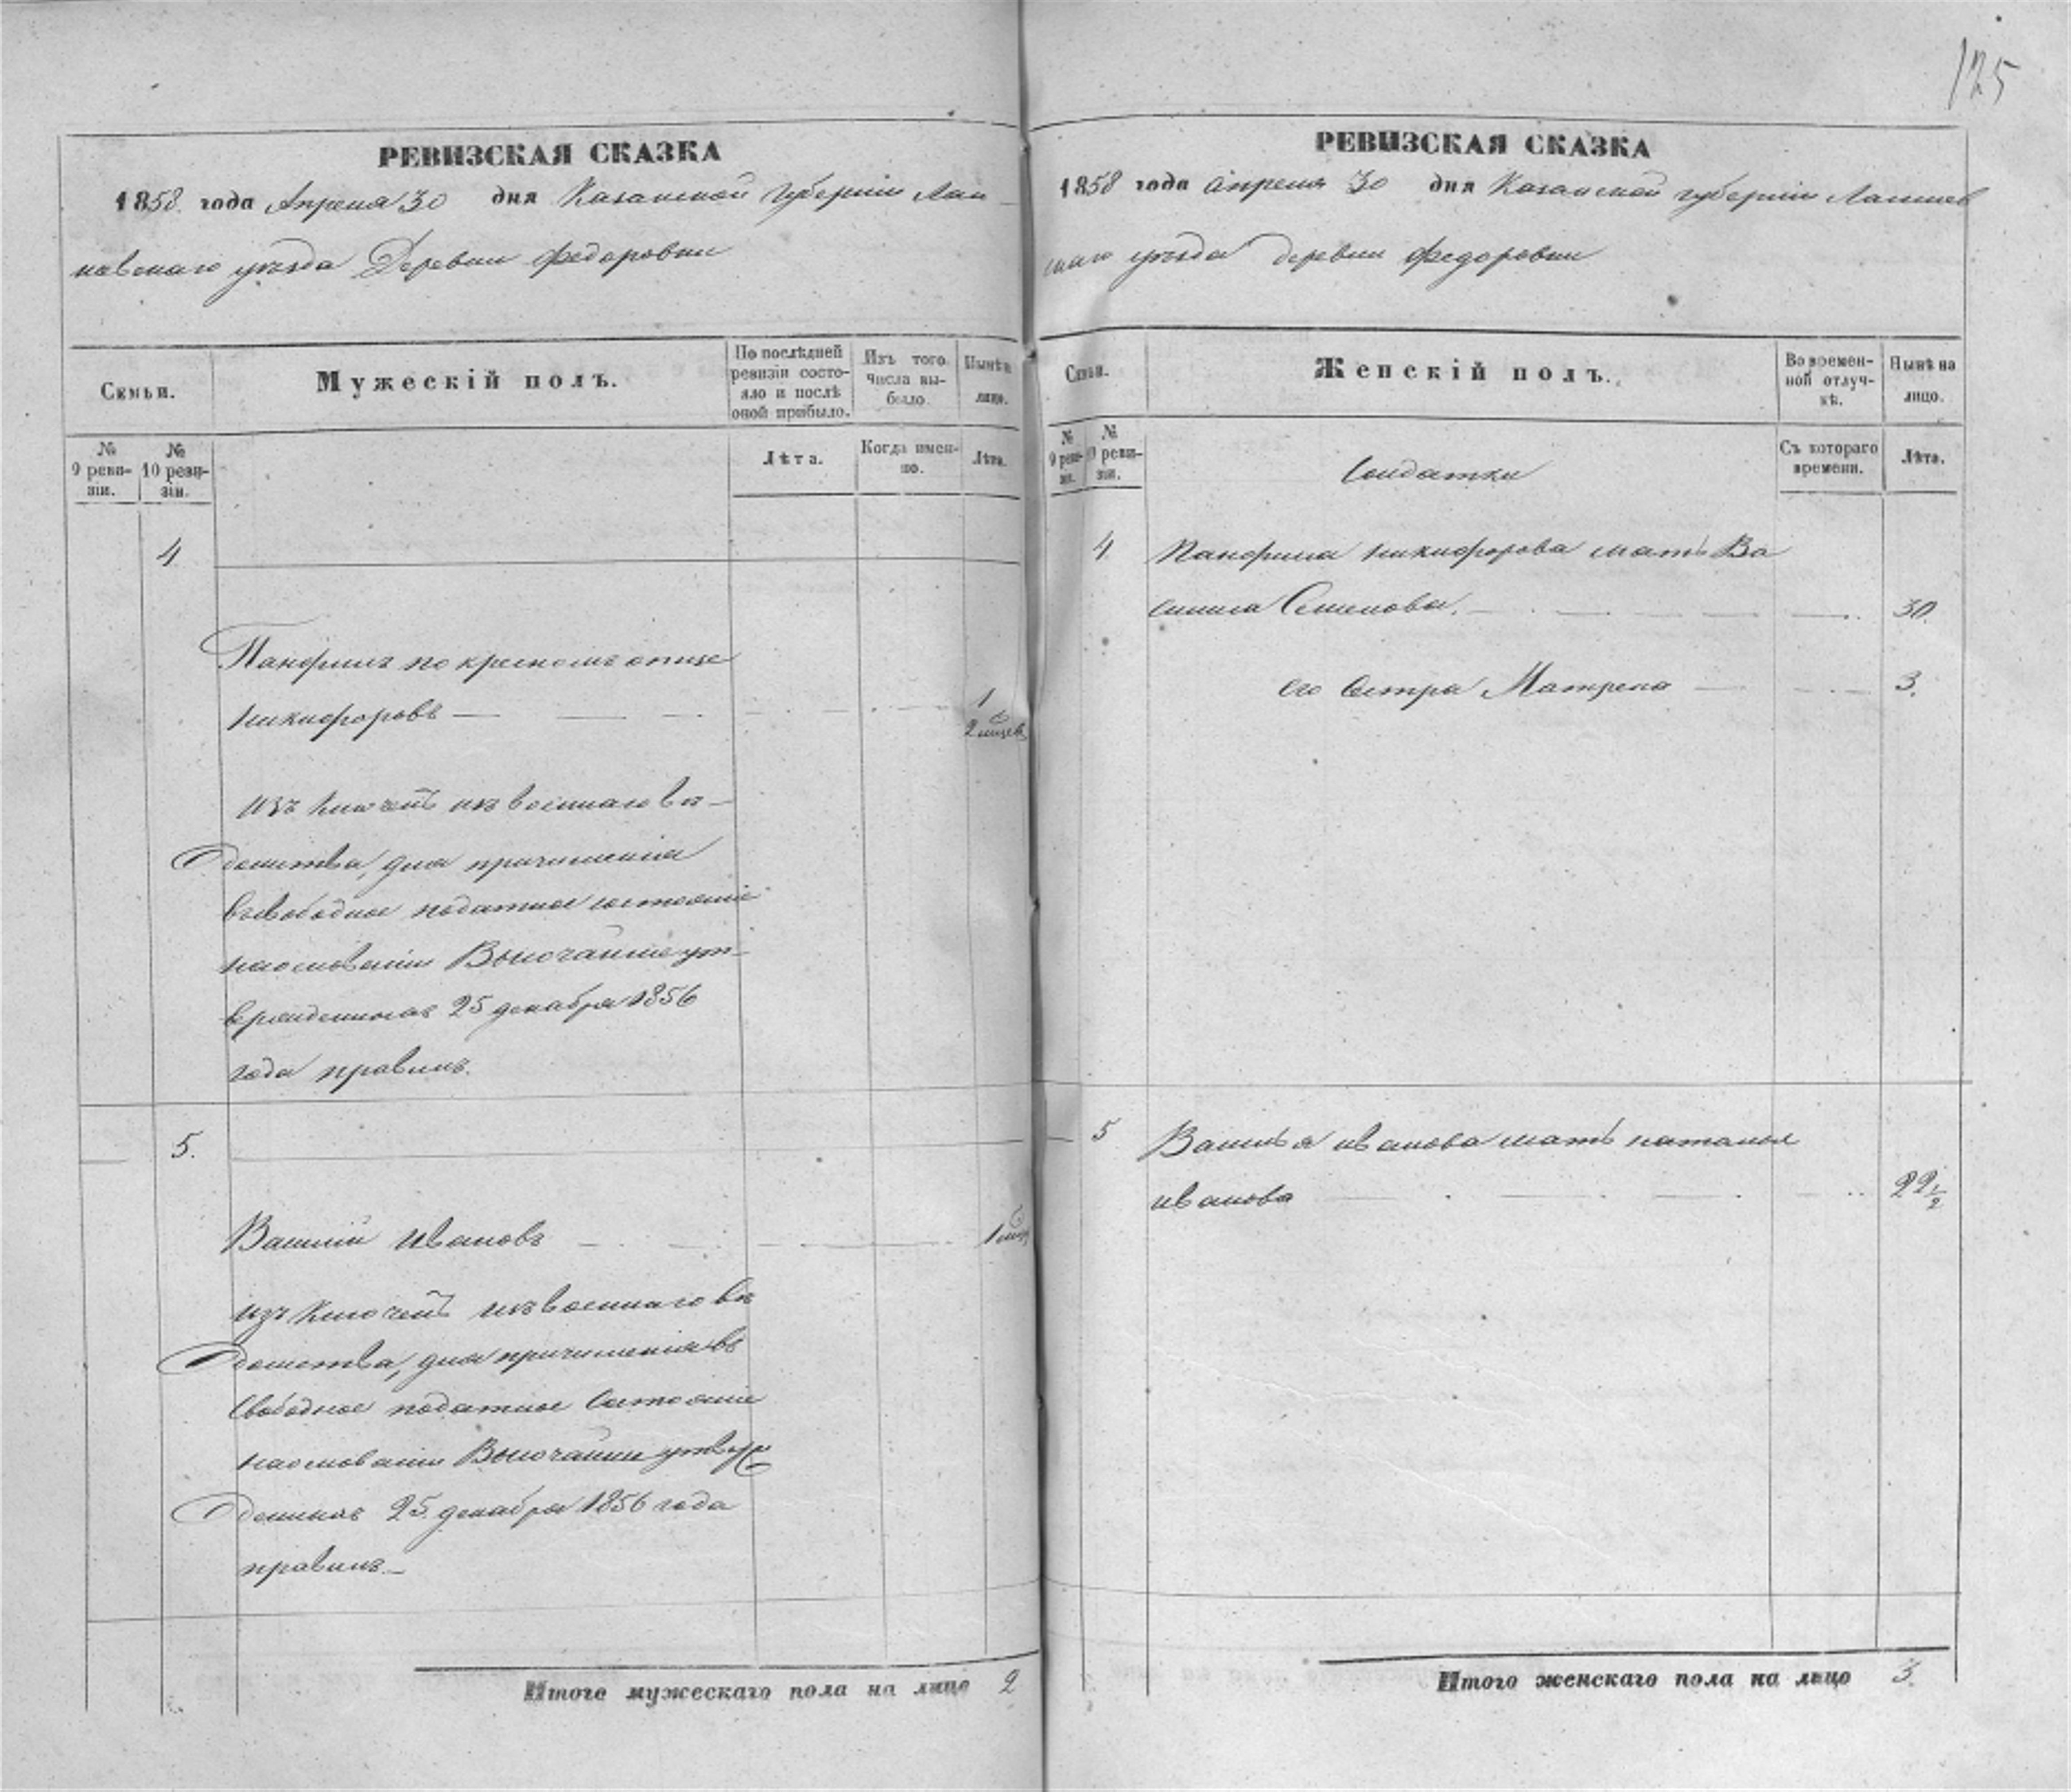 125
РЕВИЗСКАЯ СКАЗКА
1858 года Апреля 30 дня Казанской губернiи Лаи
шевскаго уѣзда Деревни Федоровки
Семьи.
Мужескiй полъ.
По послѣдней ревизiи состояло и послѣ оной прибыло.
Изъ того числа выбыло.
Нынѣ на лицо.
№ 9 ревизiи.
№ 10 ревизiи.
Лѣта.
Когда именно.
Лѣта.
4
Панфилъ по кресному отцу
Никифоровъ
1
2 мѣсев
изъ исключен. изъ военнаго вѣ-
домства, для причисленiя
въ свободное податное состоянiе
на основанiи Высочайше ут-
вержденныхъ 25 декабря 1856
года правилъ.
5.
Василiй Ивановъ
1
изъ исключен. изъ военнаго вѣ
домства, для причисленiя въ
свободное податное состоянiе
на основанiи Высочайше утверж
денныхъ 25 декабря 1856 года
правилъ.
Итого мужескаго пола на лицо 2
РЕВИЗСКАЯ СКАЗКА
1858 года Апреля 30 дня Казанской губернiи Лаишев
скаго уѣзда деревни Федоровки
Семьи.
Женскiй полъ.
Во временной отлучкѣ.
Нынѣ на лицо.
№ 9 ревизiи.
№ 10 ревизiи.
Съ котораго времени.
Лѣта.
Солдатки
4 Панфила Никифорова мать Ва
силиса Семенова. 30.
его сестра Матрена 3.
5 Василья Иванова мать Наталья
Иванова 22 1/2
Итого женскаго пола на лицо 3.